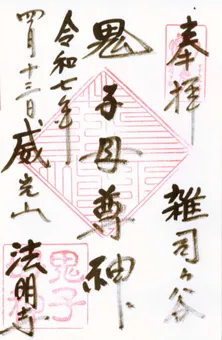 奉拝
雑司ヶ谷
鬼子母尊神
令和七年
四月十三日
威光山
法明寺